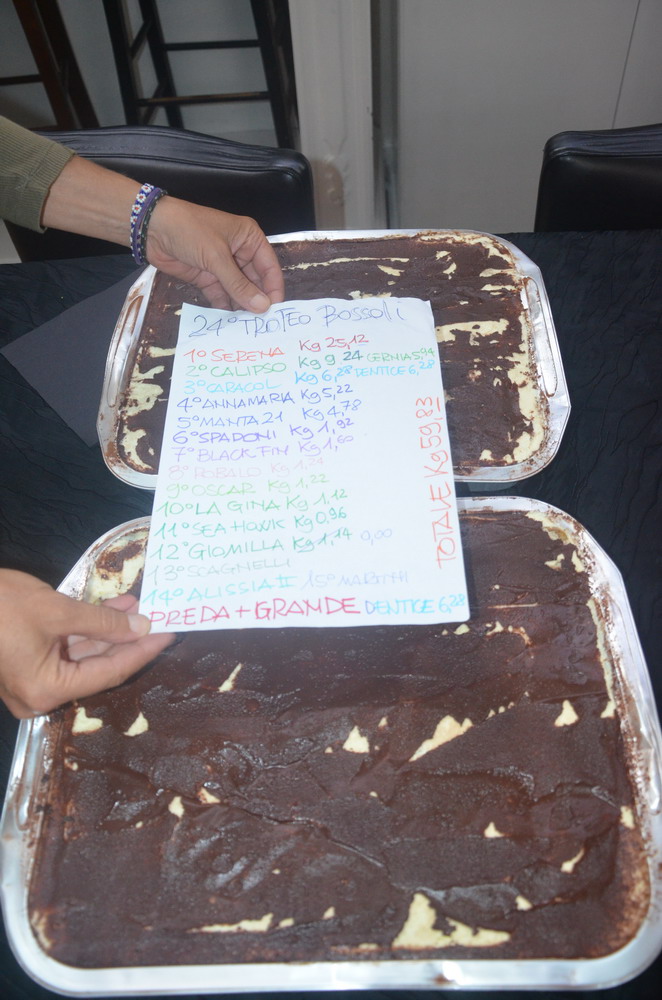 24° TROFEO BOSSOLI
1° SERENA Kg 25,12
2° CALIPSO Kg 9 24 CERNIA 5,94
3° CARACOL Kg 6,28 DENTICE 6,28
4° ANNAMARIA Kg 5,22
5° MANTA 21 Kg 4,78
6° SPADONI Kg 1,92
7° BLACK FIN Kg 1,60
8° ROBALO Kg 1,24
9° OSCAR Kg 1,22
10° LA GINA Kg 1,12
11° SEA HAWK Kg 0,96
12° GIOMILLA Kg 1,14 0,00
13° SCAGNELLI
14° ALISSIA II 15°
PREDA + GRANDE DENTICE 6,28
TOTALE Kg 59,83